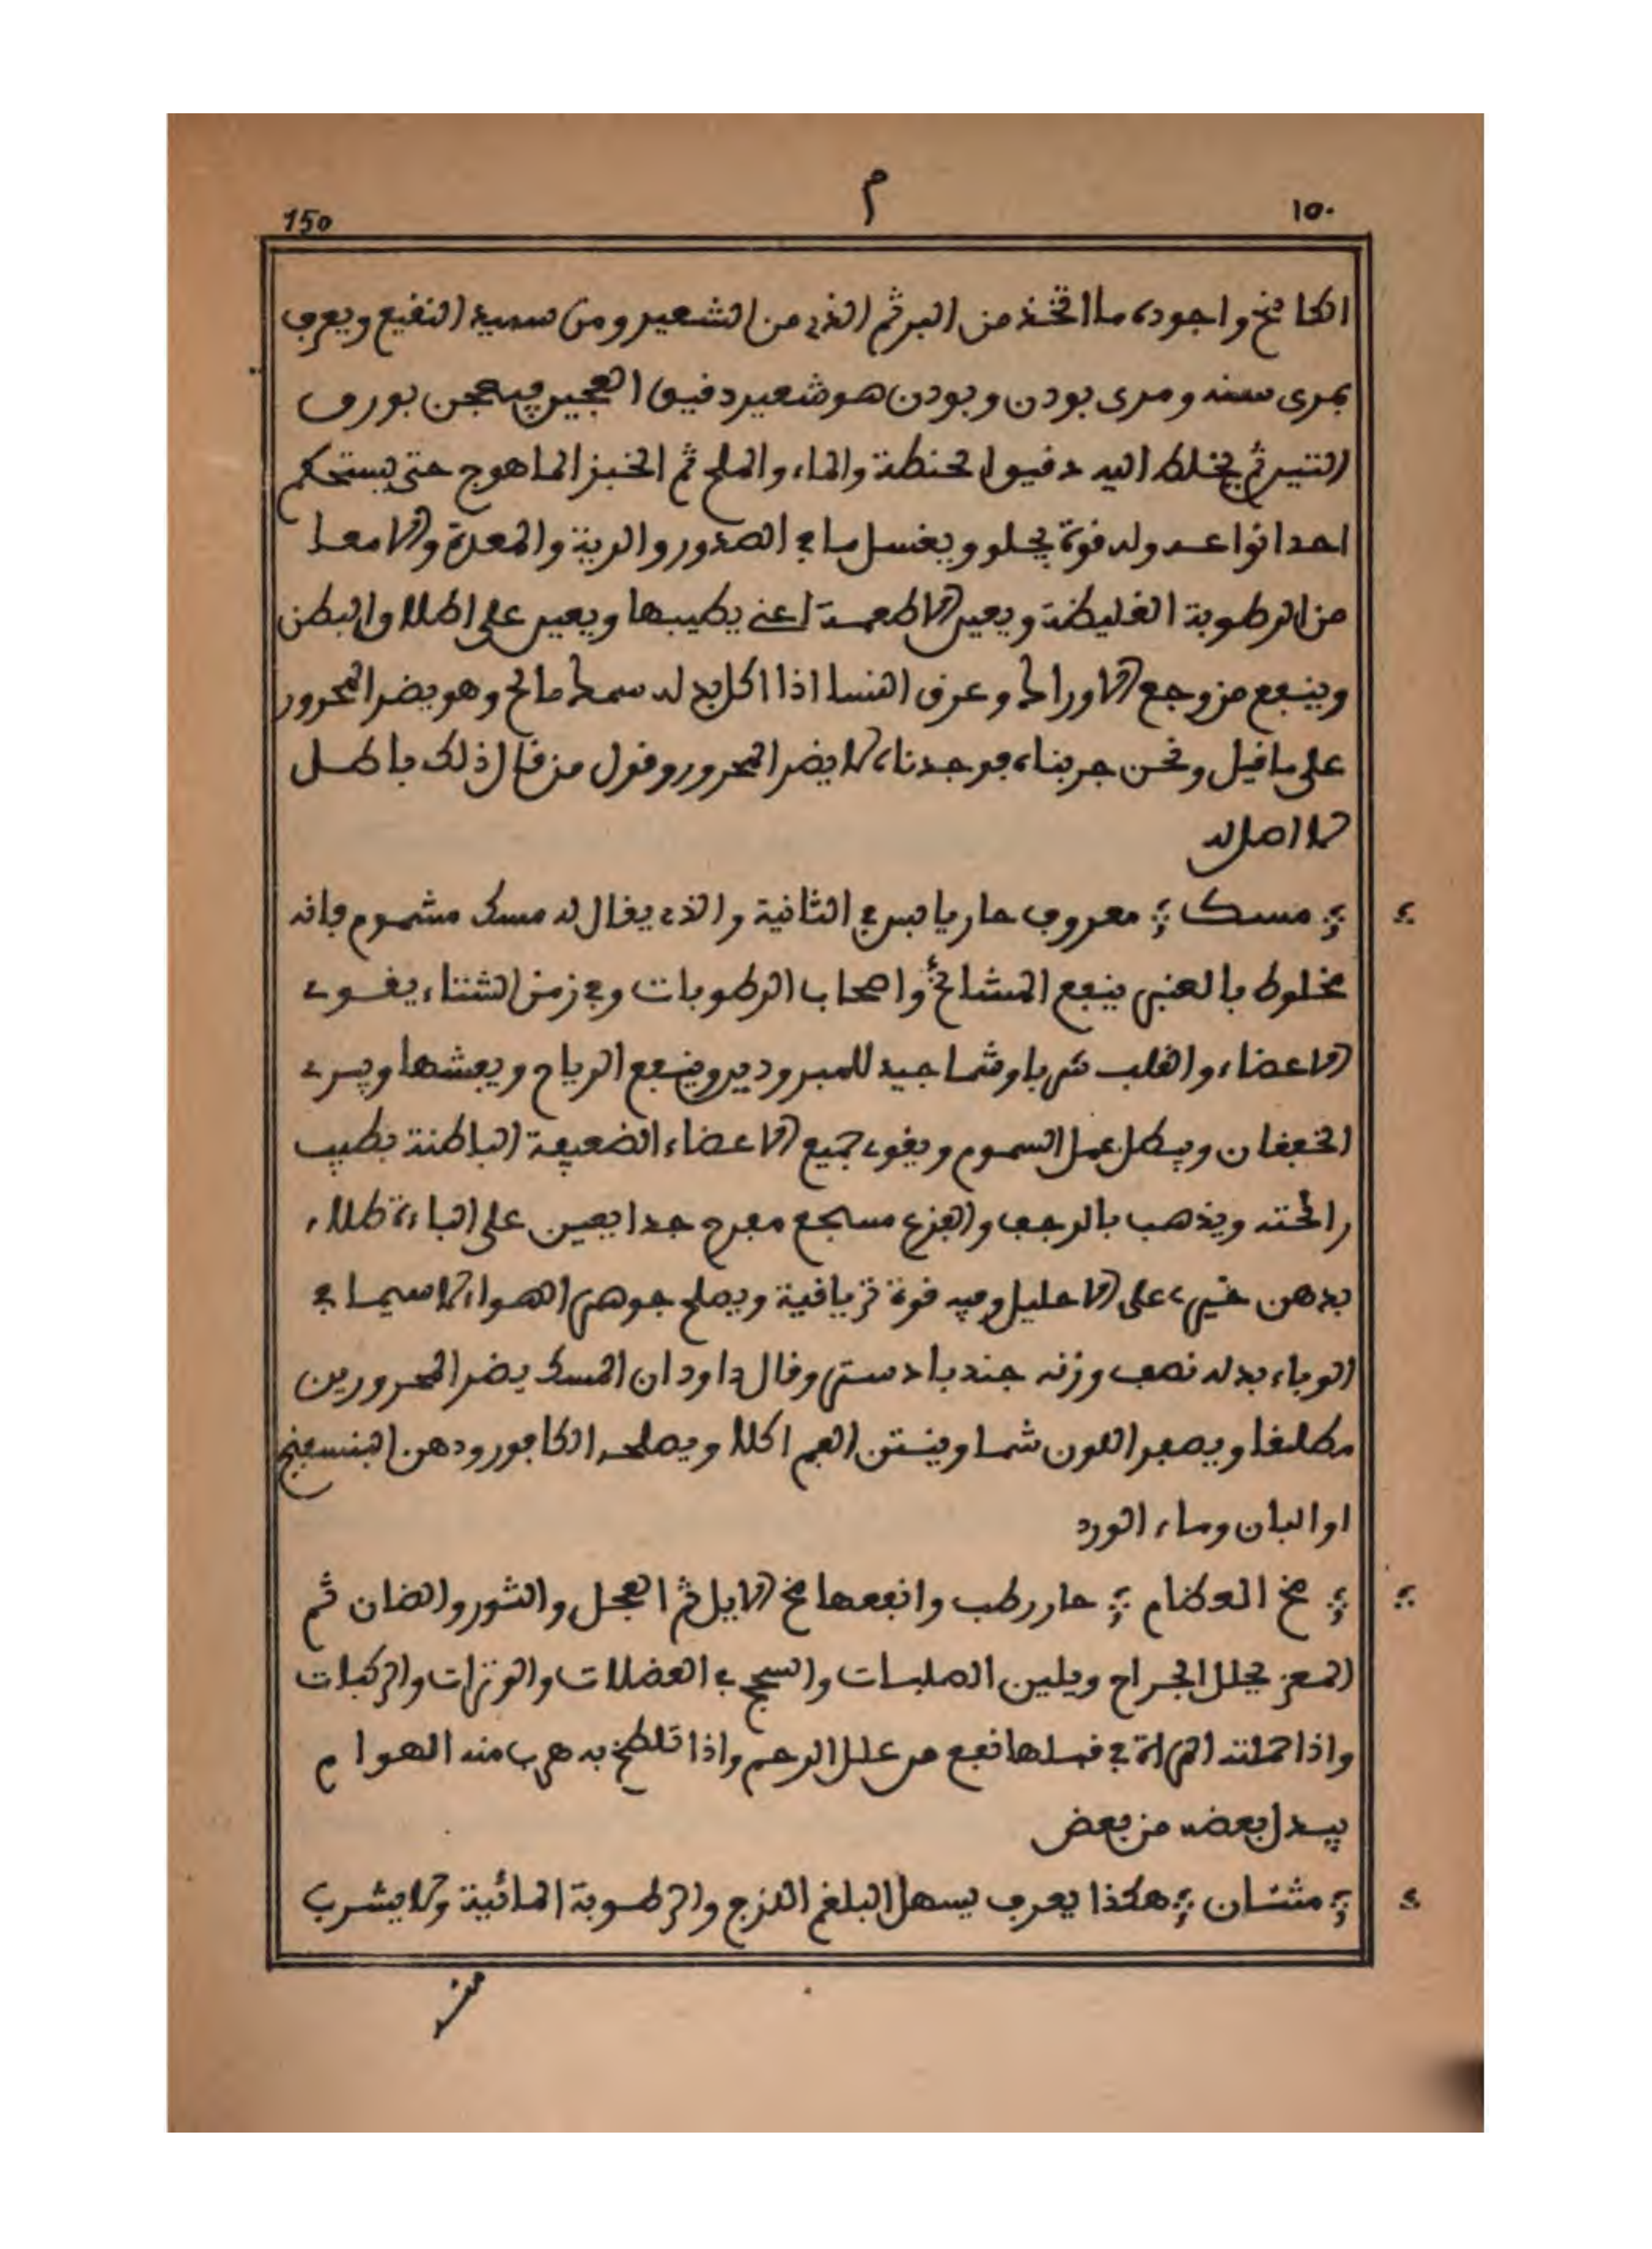 150 م ١٥٠
الكامخ واجوده ما اتخذ من البر ثم الذي من الشعير ومن سميد النقيع ويعرف
بمرى سنه ومرى بودن وبودن هو شعير دقيق العجين فيعجن بورق
التين ثم يخلط اليه دقيق الحنطة والماء والملح ثم الخبز الماهوج حتى يستحكم
احد انواعه وله قوة يجلو ويغسل ما في الصدور والرية والمعدة والامعا
من الرطوبة الغليظة ويعين الاطعمة اعني يطيبها ويعين على اطلاق البطن
وينفع من وجع الاوراك وعرق النسا اذا اكل به له سمك مالح وهو يضر المحرور
على ما قيل ونحن جربناه فوجدناه لا يضر المحرور وقول من قال ذلك باطل
لا اصل له
مسك معروف حار يابس في الثانية والذي يقال له مسك مشموم فانه
مخلوط بالعنبر ينفع المشائخ واصحاب الرطوبات وفي زمن الشتاء يقوي
الاعضاء والقلب شربا وشما جيد للمبرودين وينفع الرياح ويفشها ويبري
الخفقان ويبطل عمل السموم ويقوي جميع الاعضاء الضعيفة الباطنة بطيب
رائحته ويذهب بالرجف والفزع مسجع مفرح جدا يعين على الباءة طلاء
بدهن خيري على الاحليل وفيه قوة ترياقية ويصلح جوهر الهواء لا سيما في
الوباء بدله نصف وزنه جندبادستر وقال داود ان المسك يضر المحرورين
مطلقا ويصفر اللون شما وينتن الفم اكلا ويصلحه الكافور ودهن البنسفنج
او البان وماء الورد
مخ العظام حار رطب وانفعها مخ الايل ثم العجل والثور والضان ثم
المعز يحلل الجراح ويلين الصلبات والسحج في العضلات والوترات والركبات
واذا حملته المراة في قبلها نفع من علل الرحم واذا تلطخ به هرب منه الهوام
يبدل بعضه من بعض
مثنان هكذا يعرف يسهل البلغم اللزج والرطوبة المائية ولا يشرب